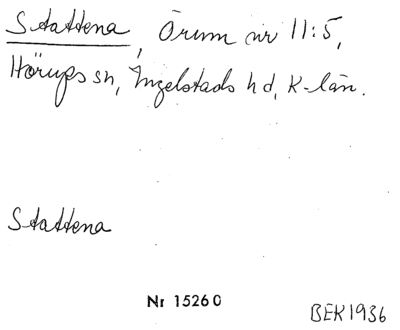 Stattena, Örum nr 11:5,
Hörups sn, Ingelstads hd, K-län.
Stattena
Nr 15260
BEK1936